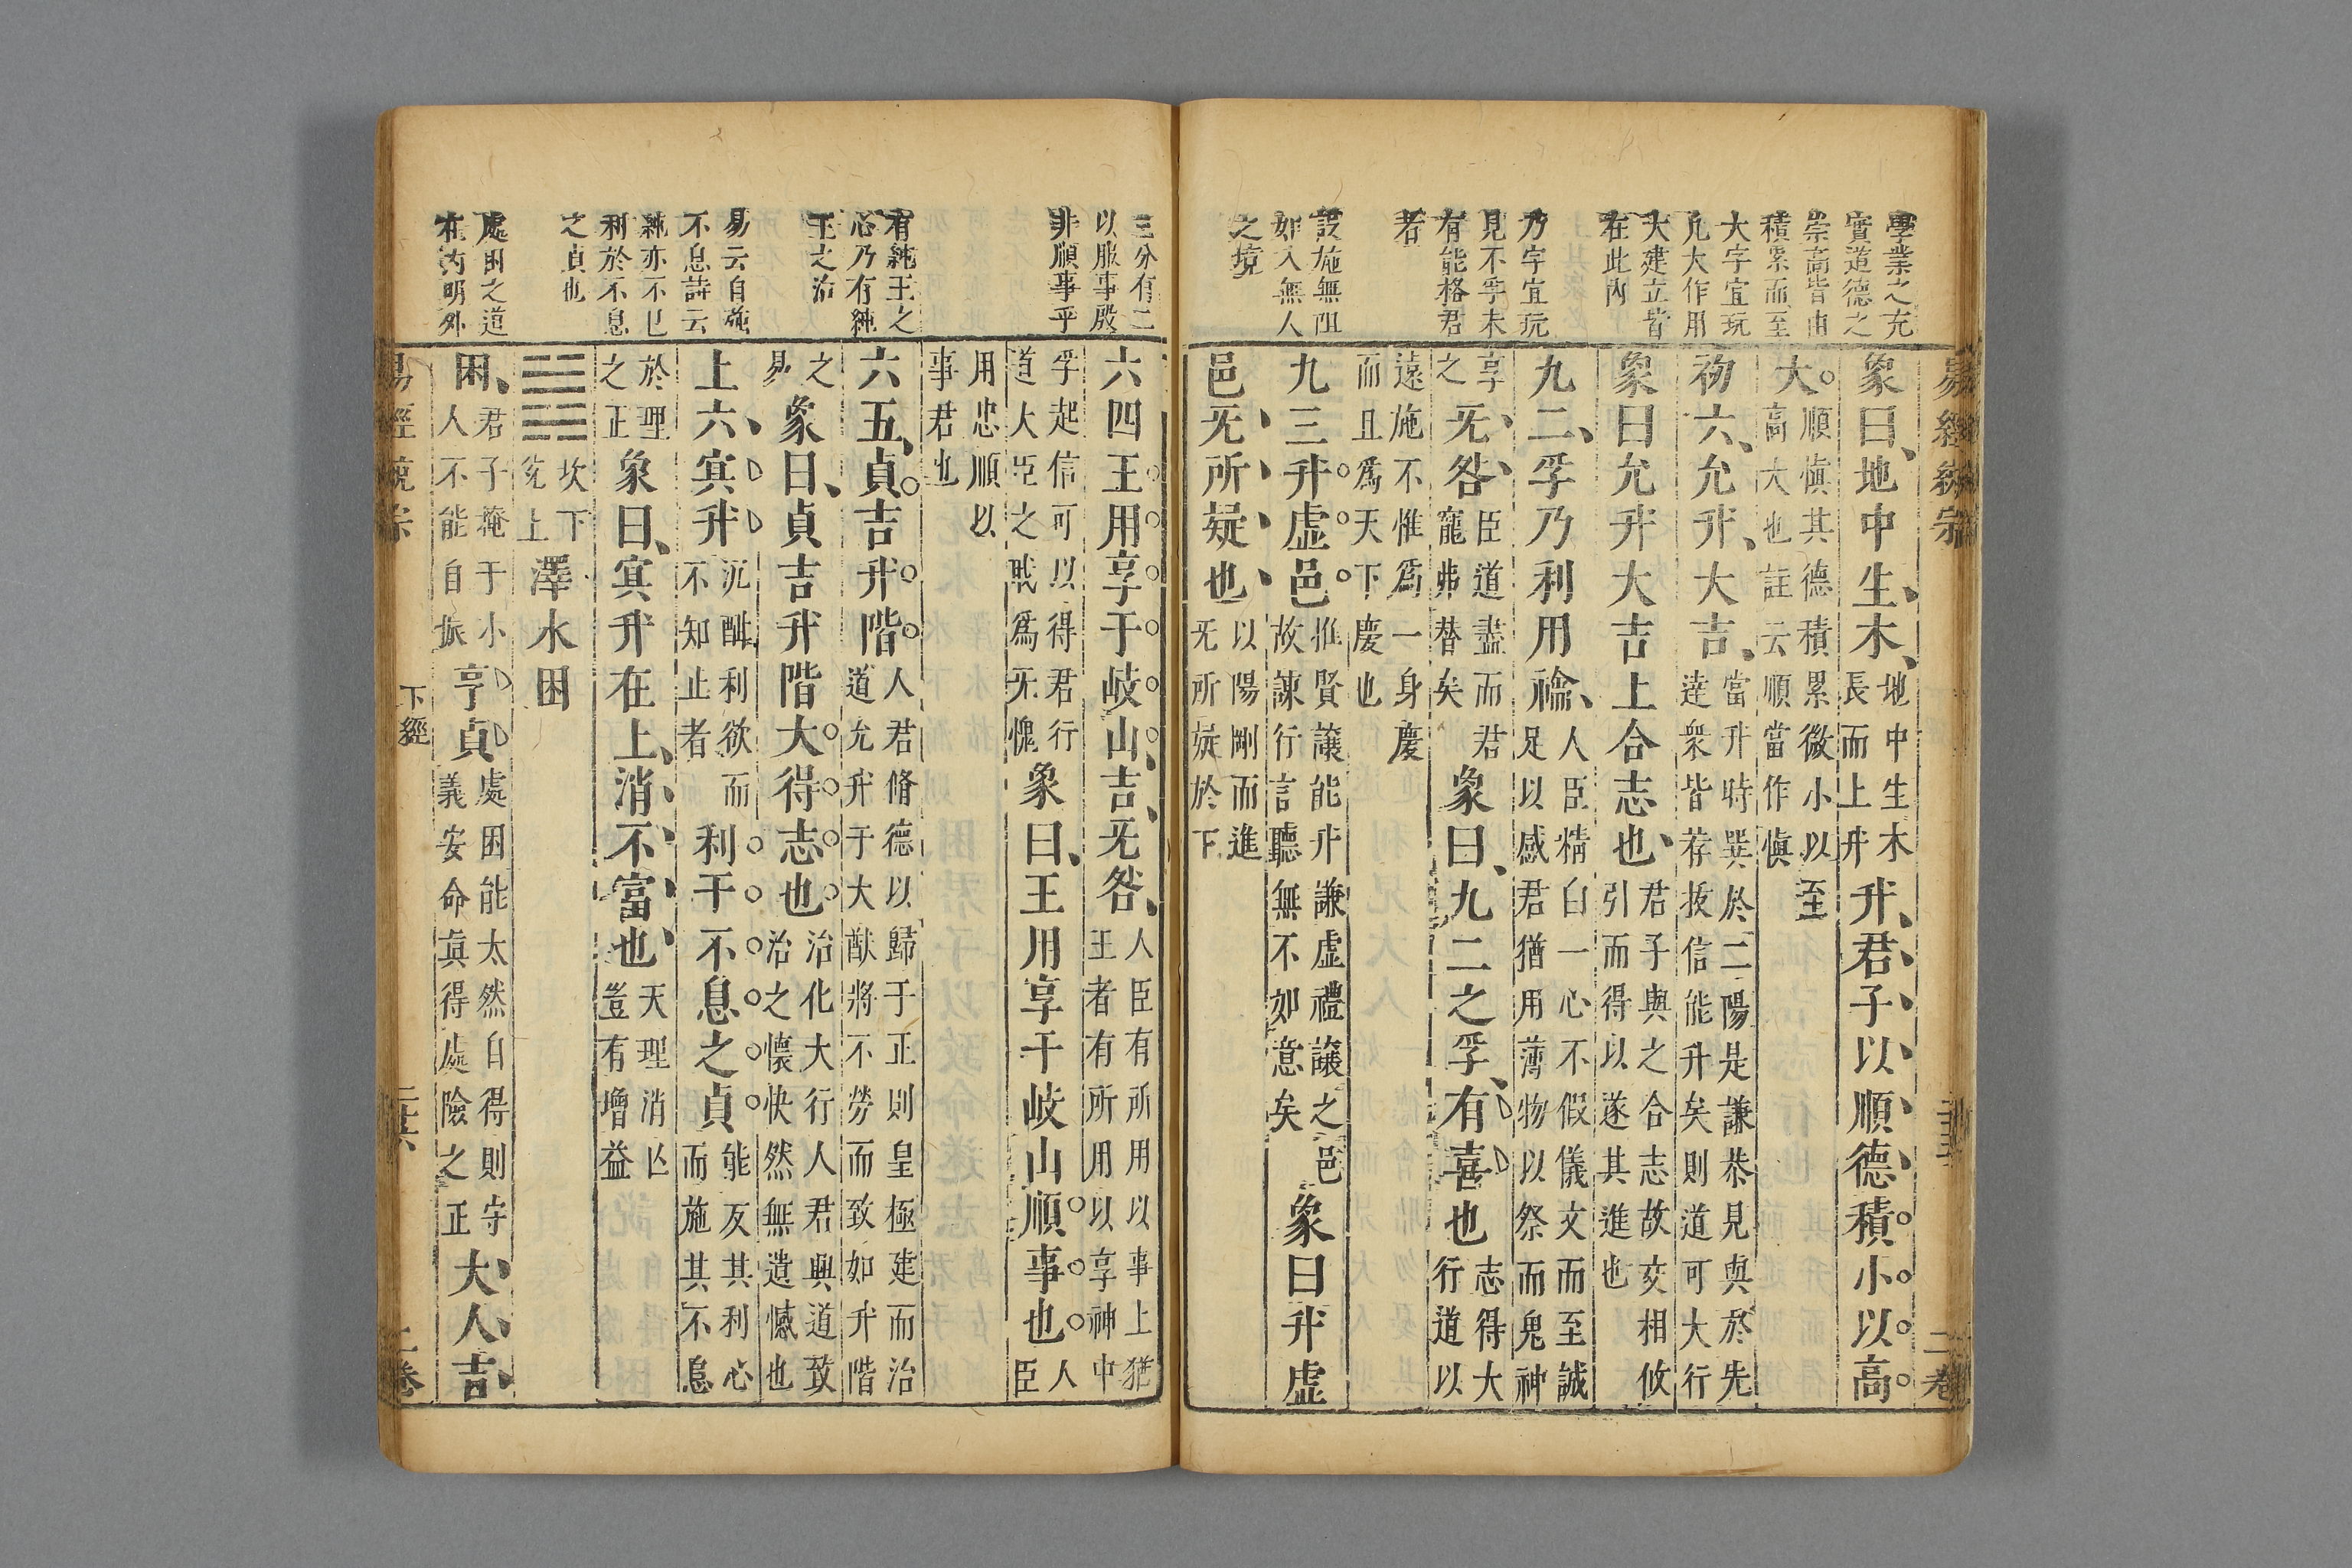 學業之充
實道德之
崇高皆由
積累而至
大字宜玩
凡大作用
大建立皆
在此內
乃字宜玩
見不孚未
有能格君
者
設施無阻
如入無人
之境
象曰地中生木地中生木長而上升升君子以順德積小以高
大順慎其德積累微小以至高大也註云順當作慎
初六允升大吉當升時巽於二陽是謙恭見與於先達衆皆荐拔信能升矣則道可大行
象曰允升大吉上合志也君子與之合志故交相攸引而得以遂其進也
九二孚乃利用禴人臣精白一心不假儀文而至誠足以感君猶用薄物以祭而鬼神
享之无咎臣道盡而君寵弗替矣象曰九二之孚有喜也志得大行道以
遠施不惟爲一身慶而且爲天下慶也
九三升虛邑推賢讓能升謙虛禮讓之邑故諫行言聽無不如意矣象曰升虛
邑无所疑也以陽剛而進无所疑於下
三分有二
以服事殷
非順事乎
有純王之
心乃有純
王之治
易云自強
不息詩云
純亦不已
利於不息
之貞也
處困之道
在內明外
六四王用享于岐山吉无咎人臣有所用以事上猶王者有所用以享神中
孚起信可以得君行道大臣之戝爲无愧象曰王用享于岐山順事也人臣
用忠順以事君也
六五貞吉升階人君脩德以歸于正則皇極建而治道允升于大猷將不勞而致如升階
之易象曰貞吉升階大得志也治化大行人君興道致治之懷快然無遺憾也
上六冥升沉酣利欲而不知止者利于不息之貞能反其利心而施其不息
於理之正象曰冥升在上消不富也天理消亾豈有增益
坎下兌上澤水困
困君子掩于小人不能自振亨貞處困能太然自得則守義安命真得處險之正大人吉
易經說宗
下經
二卷